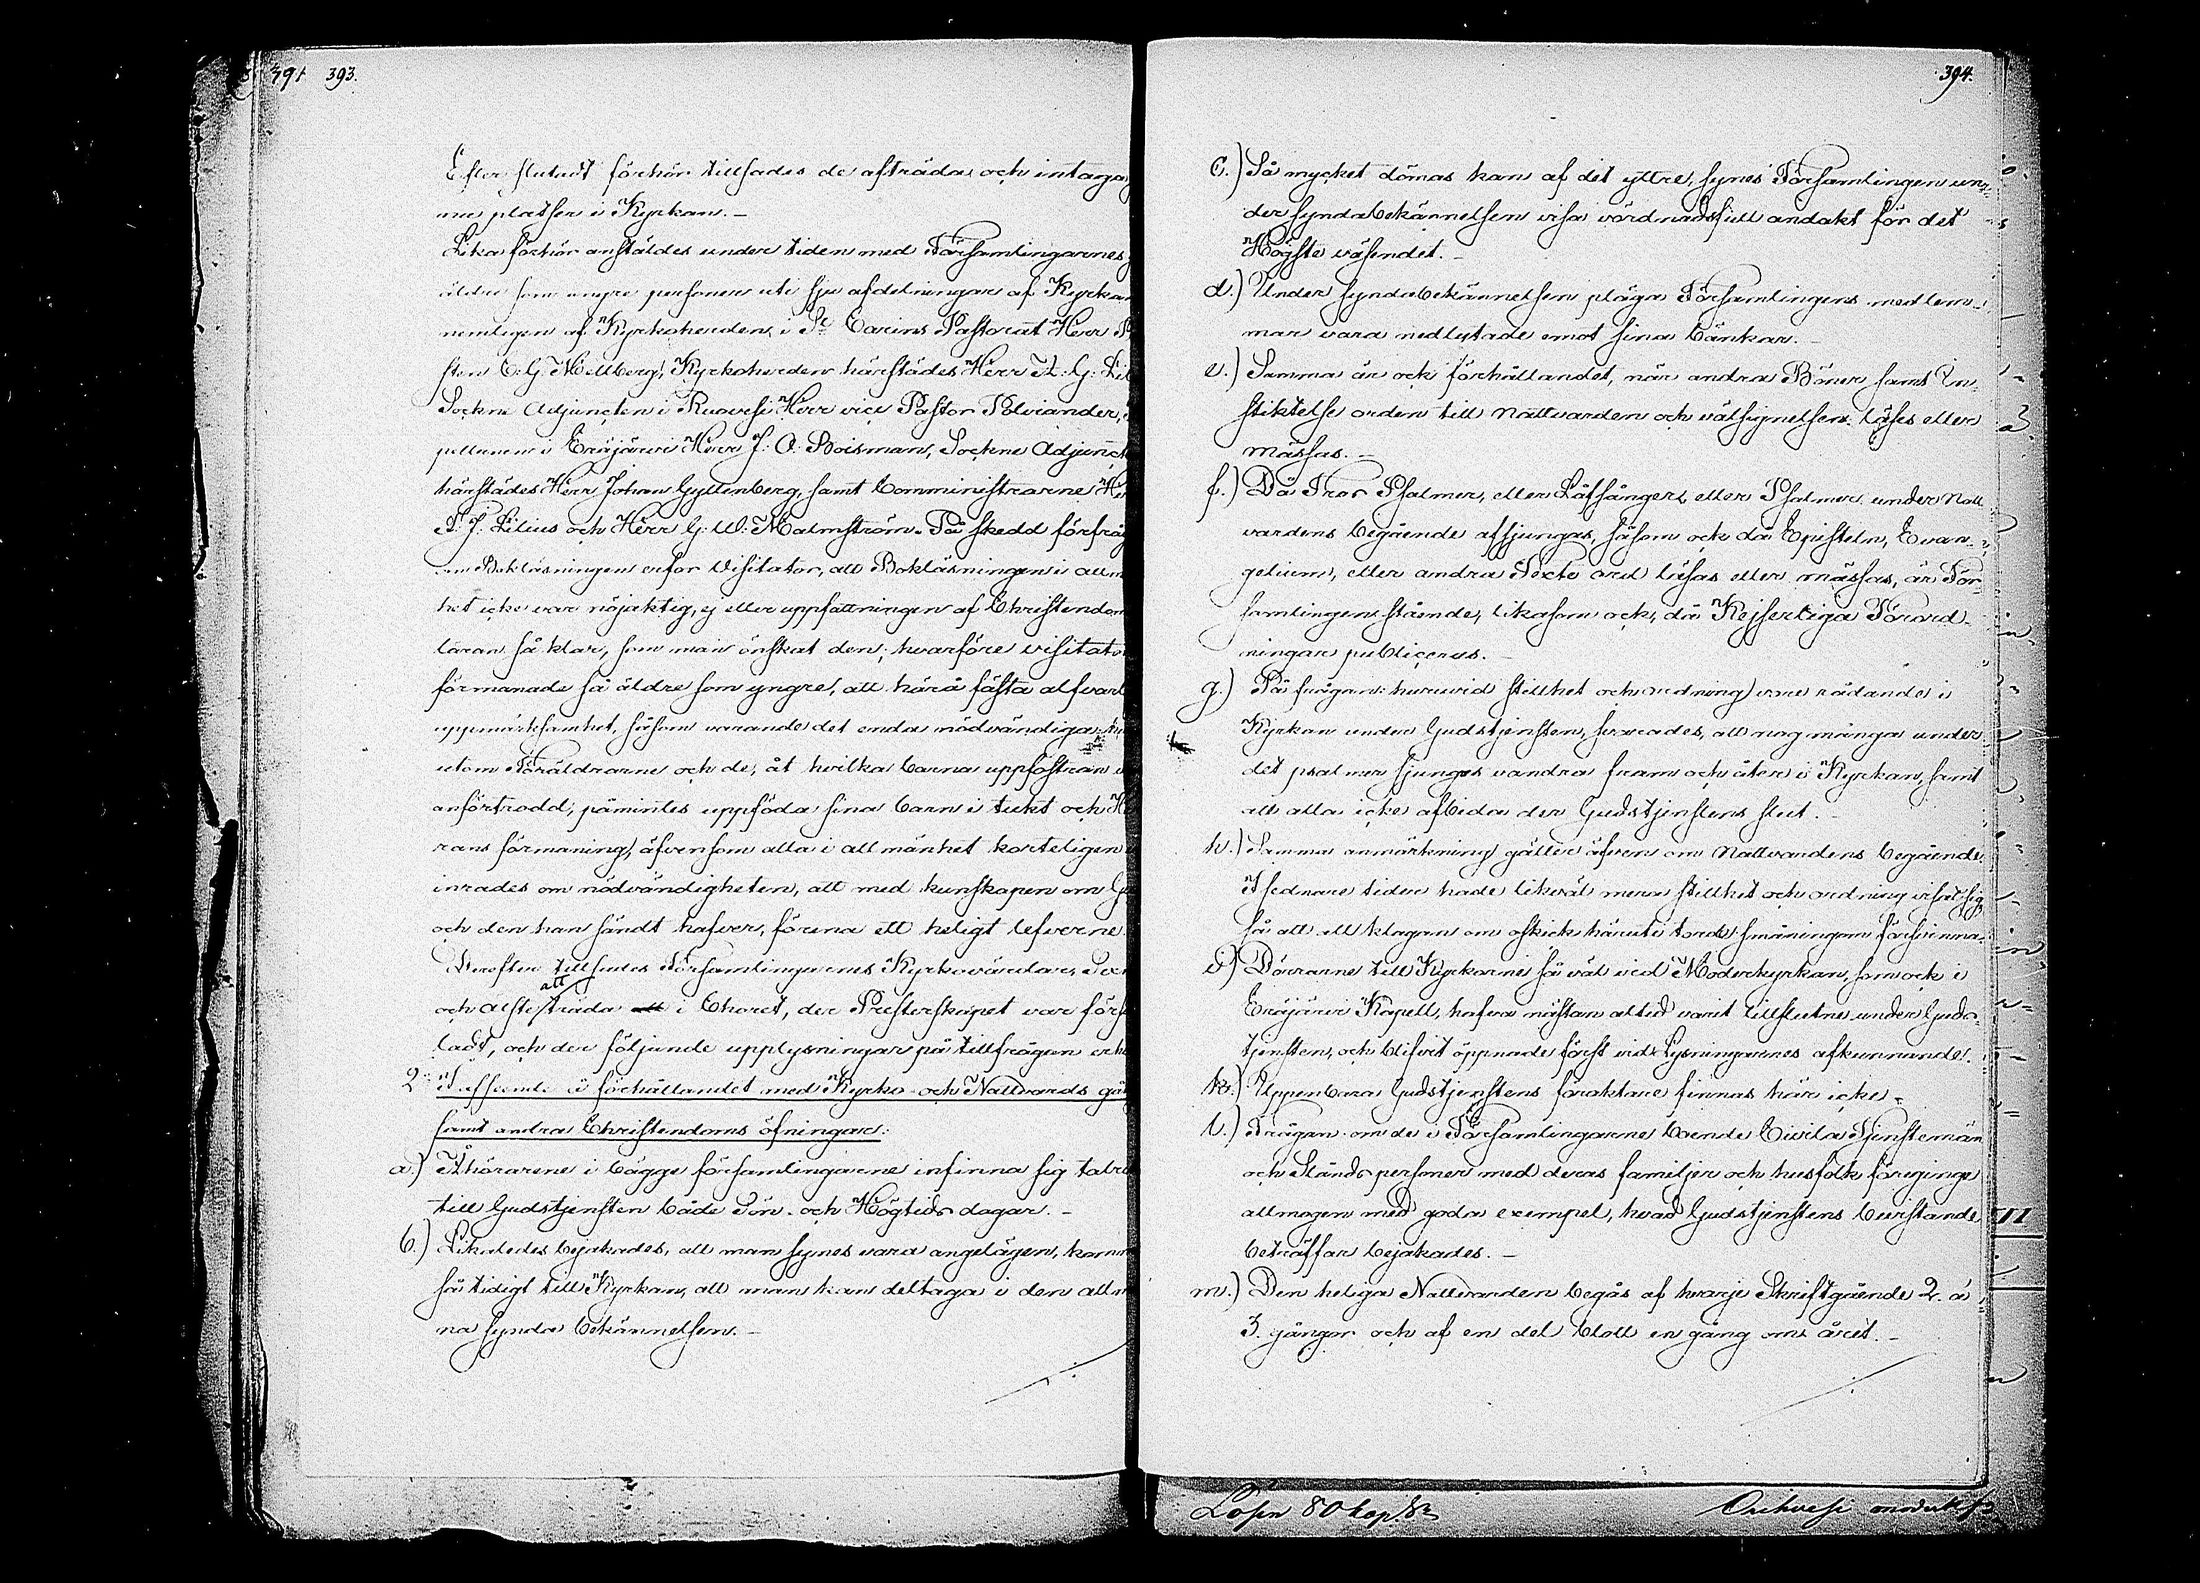 391 393.
Efter slutadt förhör tillsades de afträda och intaga
ne platser i Kyrkan. –
Lika förhör anstäldes under tiden med Församlingarnes
äldre som yngre personer uti sju afdelningar af Kyrkan
nemligen af Kyrkoherden i S:t Carins Pastorat Herr
sten C. G. Mellberg, Kyrkoherden härstädes Herr A. G. Lil
Sockne Adjuncten i Ruovesi Herr vice Pastor Polviander,
pellanen i Eräjärvi Herr J. O. Boisman, Sockne Adjunct
härstädes Herr Johan Gyllenberg, samt Comministrarne He
J. Lilius och Herr G. W. Malmström. På skedd förfråg
om Bokläsningen erfor Visitator, att Bokläsningen i allm
het icke var nöjaktig, ej eller uppfattningen af Christendom
läran så klar, som man önskat den; hvarföre visitator
förmanade så äldre som yngre, att härå fästa alfvarl
uppmärksamhet, såsom varande det enda nödvändiga;
utom Föräldrarne och de, åt hvilka barna uppfostran
anförtrodd, påmintes uppföda sina barn i tukt och He
rans förmaning, äfvensom alla i allmänhet korteligen
inrades om nödvändigheten, att med kunskapen om Gu
och den han sändt hafver, förena ett heligt lefverne.
Derefter tillsades Församlingarnes Kyrkovärdar, Sex
att
och Älste träda i Choret, der Presterskapet var förs
ladt, och der följande upplysningar på tillfrågan erh
2:o Afseende å förhållandet med Kyrko- och Nattvards gå
samt andra Christendoms öfningar:
a.) Åhörarene i bägge församlingarne infinna sig talri
till Gudstjensten både Sön- och Högtids dagar. –
b.) Likaledes bejakades, att man synes vara angelägen, komm
så tidigt till Kyrkan, att man kan deltaga i den allm
na synda bekännelsen. –
394.
c.) Så mycket dömas kan af det yttre, synes Församlingen un-
der syndabekännelsen visa vördnadsfull andakt för det
Högste väsendet. –
d.) Under syndabekännelsen pläga Församlingens medlem-
mar vara nedlutade emot sina bänkar. –
e.) Samma är ock förhållandet, när andra Böner samt In-
stiktelse orden till Nattvarden och välsignelsen läses eller
mässas. –
f.) Då Tros Psalmer, eller Låfsången, eller Psalmer under Natt
vardens begående afsjungas, såsom ock då Episteln, Evan-
gelium, eller andra Texte ord läsas eller mässas, är För-
samlingen stående, likasom ock, då Kejserliga Förord-
ningar publiceras. –
g.) På frågan: huruvid stillhet och ordning vore rådande i
Kyrkan under Gudstjensten, svarades, att nog många under
det psalmer sjunges vandra fram och åter i Kyrkan, samt
att alla icke afbida der Gudstjenstens slut. –
h.) Samma anmärkning gäller äfven om Nattvardens begående.
I sednare tider hade likväl mera stillhet och ordning visat sig,
så att all klagan om oskick häruti torde småningom försvinna.
i) Dörrarne till Kyrkorne så väl vid Moderkyrkan, som ock i
Eräjärvi Kapell, hafva nästan altid varit tillslutne under Guds-
tjensten, och blifvit öppnade först vid Lysningarnes afkunnande.
k.) Uppenbara Gudstjenstens föraktare finnas här icke. –
l.) Frågan om de i Församlingarne boende Civila Tjenstemän
och Stånds personer med deras familjer och husfolk föregingo
allmogen med goda exempel, hvad Gudstjenstens bevistande
beträffar bejakades. –
m.) Den heliga Nattvarden begås af hvarje Skriftgående 2. à
3. gångor och af en del blott en gång om året. –
Lösen 80 kop. Sr
Orihvesi